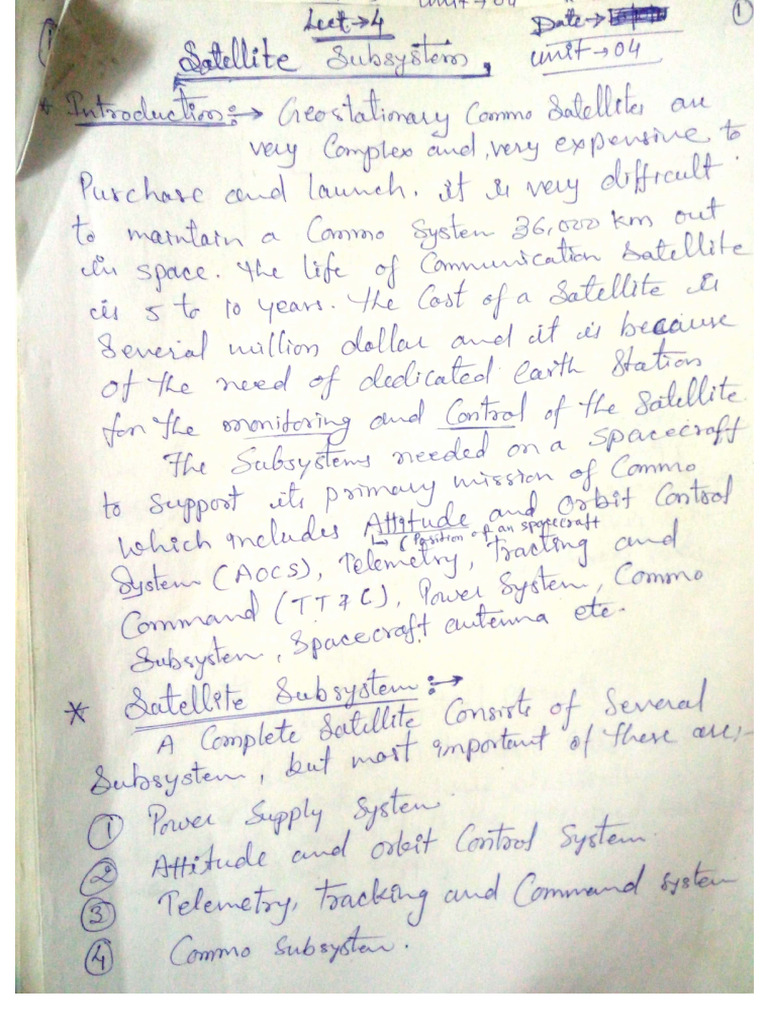 Unit → 04
Lect → 4
Date →
①
Satellite Subsystem,
Unit → 04
* Introduction:→ Geostationary Commo Satellites are
very Complex and, very expensive to
Purchase and launch. it is very difficult
to maintain a Commo System 36,000 km out
in space. The life of Communication Satellite
is 5 to 10 years. The Cost of a Satellite is
Several million dollar and it is because
of the need of dedicated earth Station
for the monitoring and Control of the Satellite.
The Subsystems needed on a spacecraft
to support its primary mission of Commo
which includes Attitude and Orbit Control
↳ (Position of an spacecraft
System (AOCS), Telemetry, Tracting and
Command (TT&C), Power System, Commo
Subsystem, Spacecraft antenna etc.
* Satellite Subsystem:→
A Complete Satellite Consists of Several
Subsystem, but most important of these are;-
① Power Supply System
② Attitude and orbit Control System.
③ Telemetry, Tracking and Command system
④ Commo Subsystem.